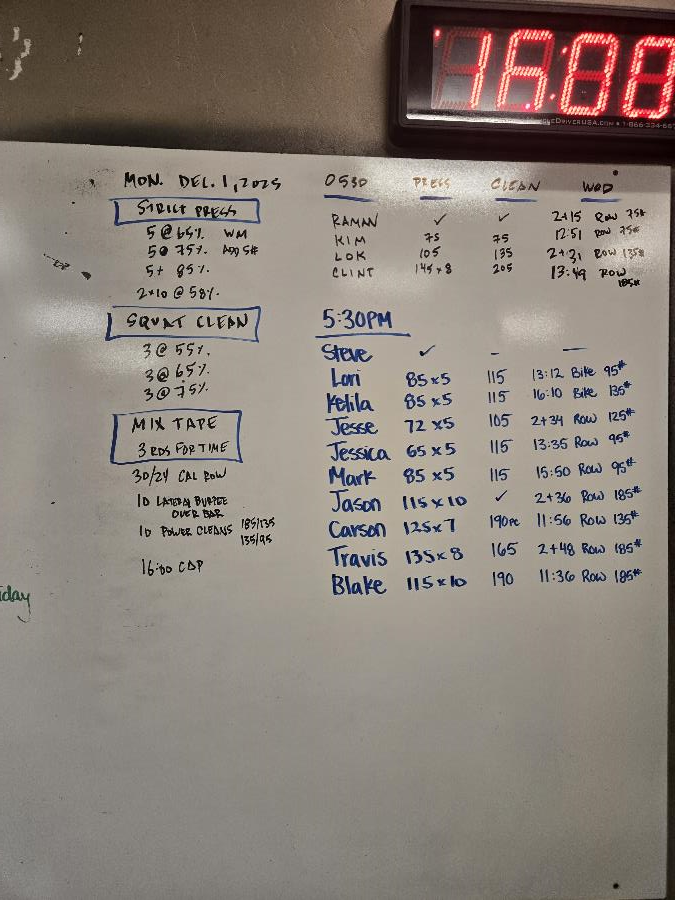 16:00
MON. DEC. 1, 2025
STRICT PRESS
5 @ 65%. WM
5 @ 75%. ADD 5#
5+ 85%.
2×10 @ 58%.
SQUAT CLEAN
3 @ 55%.
3 @ 65%.
3 @ 75%.
MIX TAPE
3 RDS FOR TIME
30/24 CAL ROW
10 LATERAL BURPEE
OVER BAR
10 POWER CLEANS 185/135
135/95
16:00 CAP
0530 PRESS CLEAN WOD
RAMAN ✓ ✓ 2+15 ROW 75#
KIM 75 75 12:51 ROW 75#
LOK 105 135 2+31 ROW 135#
CLINT 145×8 205 13:49 ROW
185#
5:30PM
Steve ✓ – —
Lori 85×5 115 13:12 Bike 95#
Kelila 85×5 115 16:10 Bike 135#
Jesse 72×5 105 2+34 Row 125#
Jessica 65×5 115 13:35 Row 95#
Mark 85×5 115 15:50 Row 95#
Jason 115×10 ✓ 2+36 Row 185#
Carson 125×7 190 11:56 Row 135#
Travis 135×8 165 2+48 Row 185#
Blake 115×10 190 11:36 Row 185#
iday